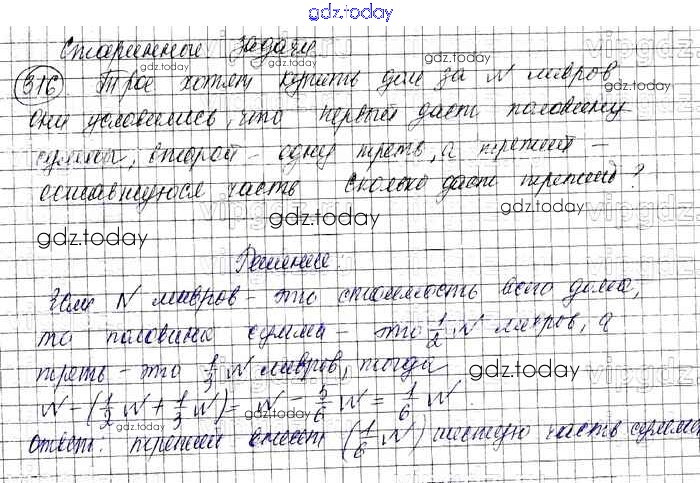 gdz.today
Старинные задачи
316 Трое хотят купить дом за N ливров
gdz.today
они условились, что первый даст половину
суммы, второй - одну треть, а третий -
gdz.today
оставшуюся часть сколько даст третий?
gdz.today gdz.today gdz.today
Решение:
Если N ливров - это стоимость всего дома,
то половина суммы - это 1/2 N ливров, а
gdz.today
треть - это 1/3 N ливров, тогда gdz.today
N - (1/2 N + 1/3 N) = N - 5/6 N = 1/6 N
gdz.today
Ответ: третий внесет (1/6 N) шестую часть суммы
gdz.today